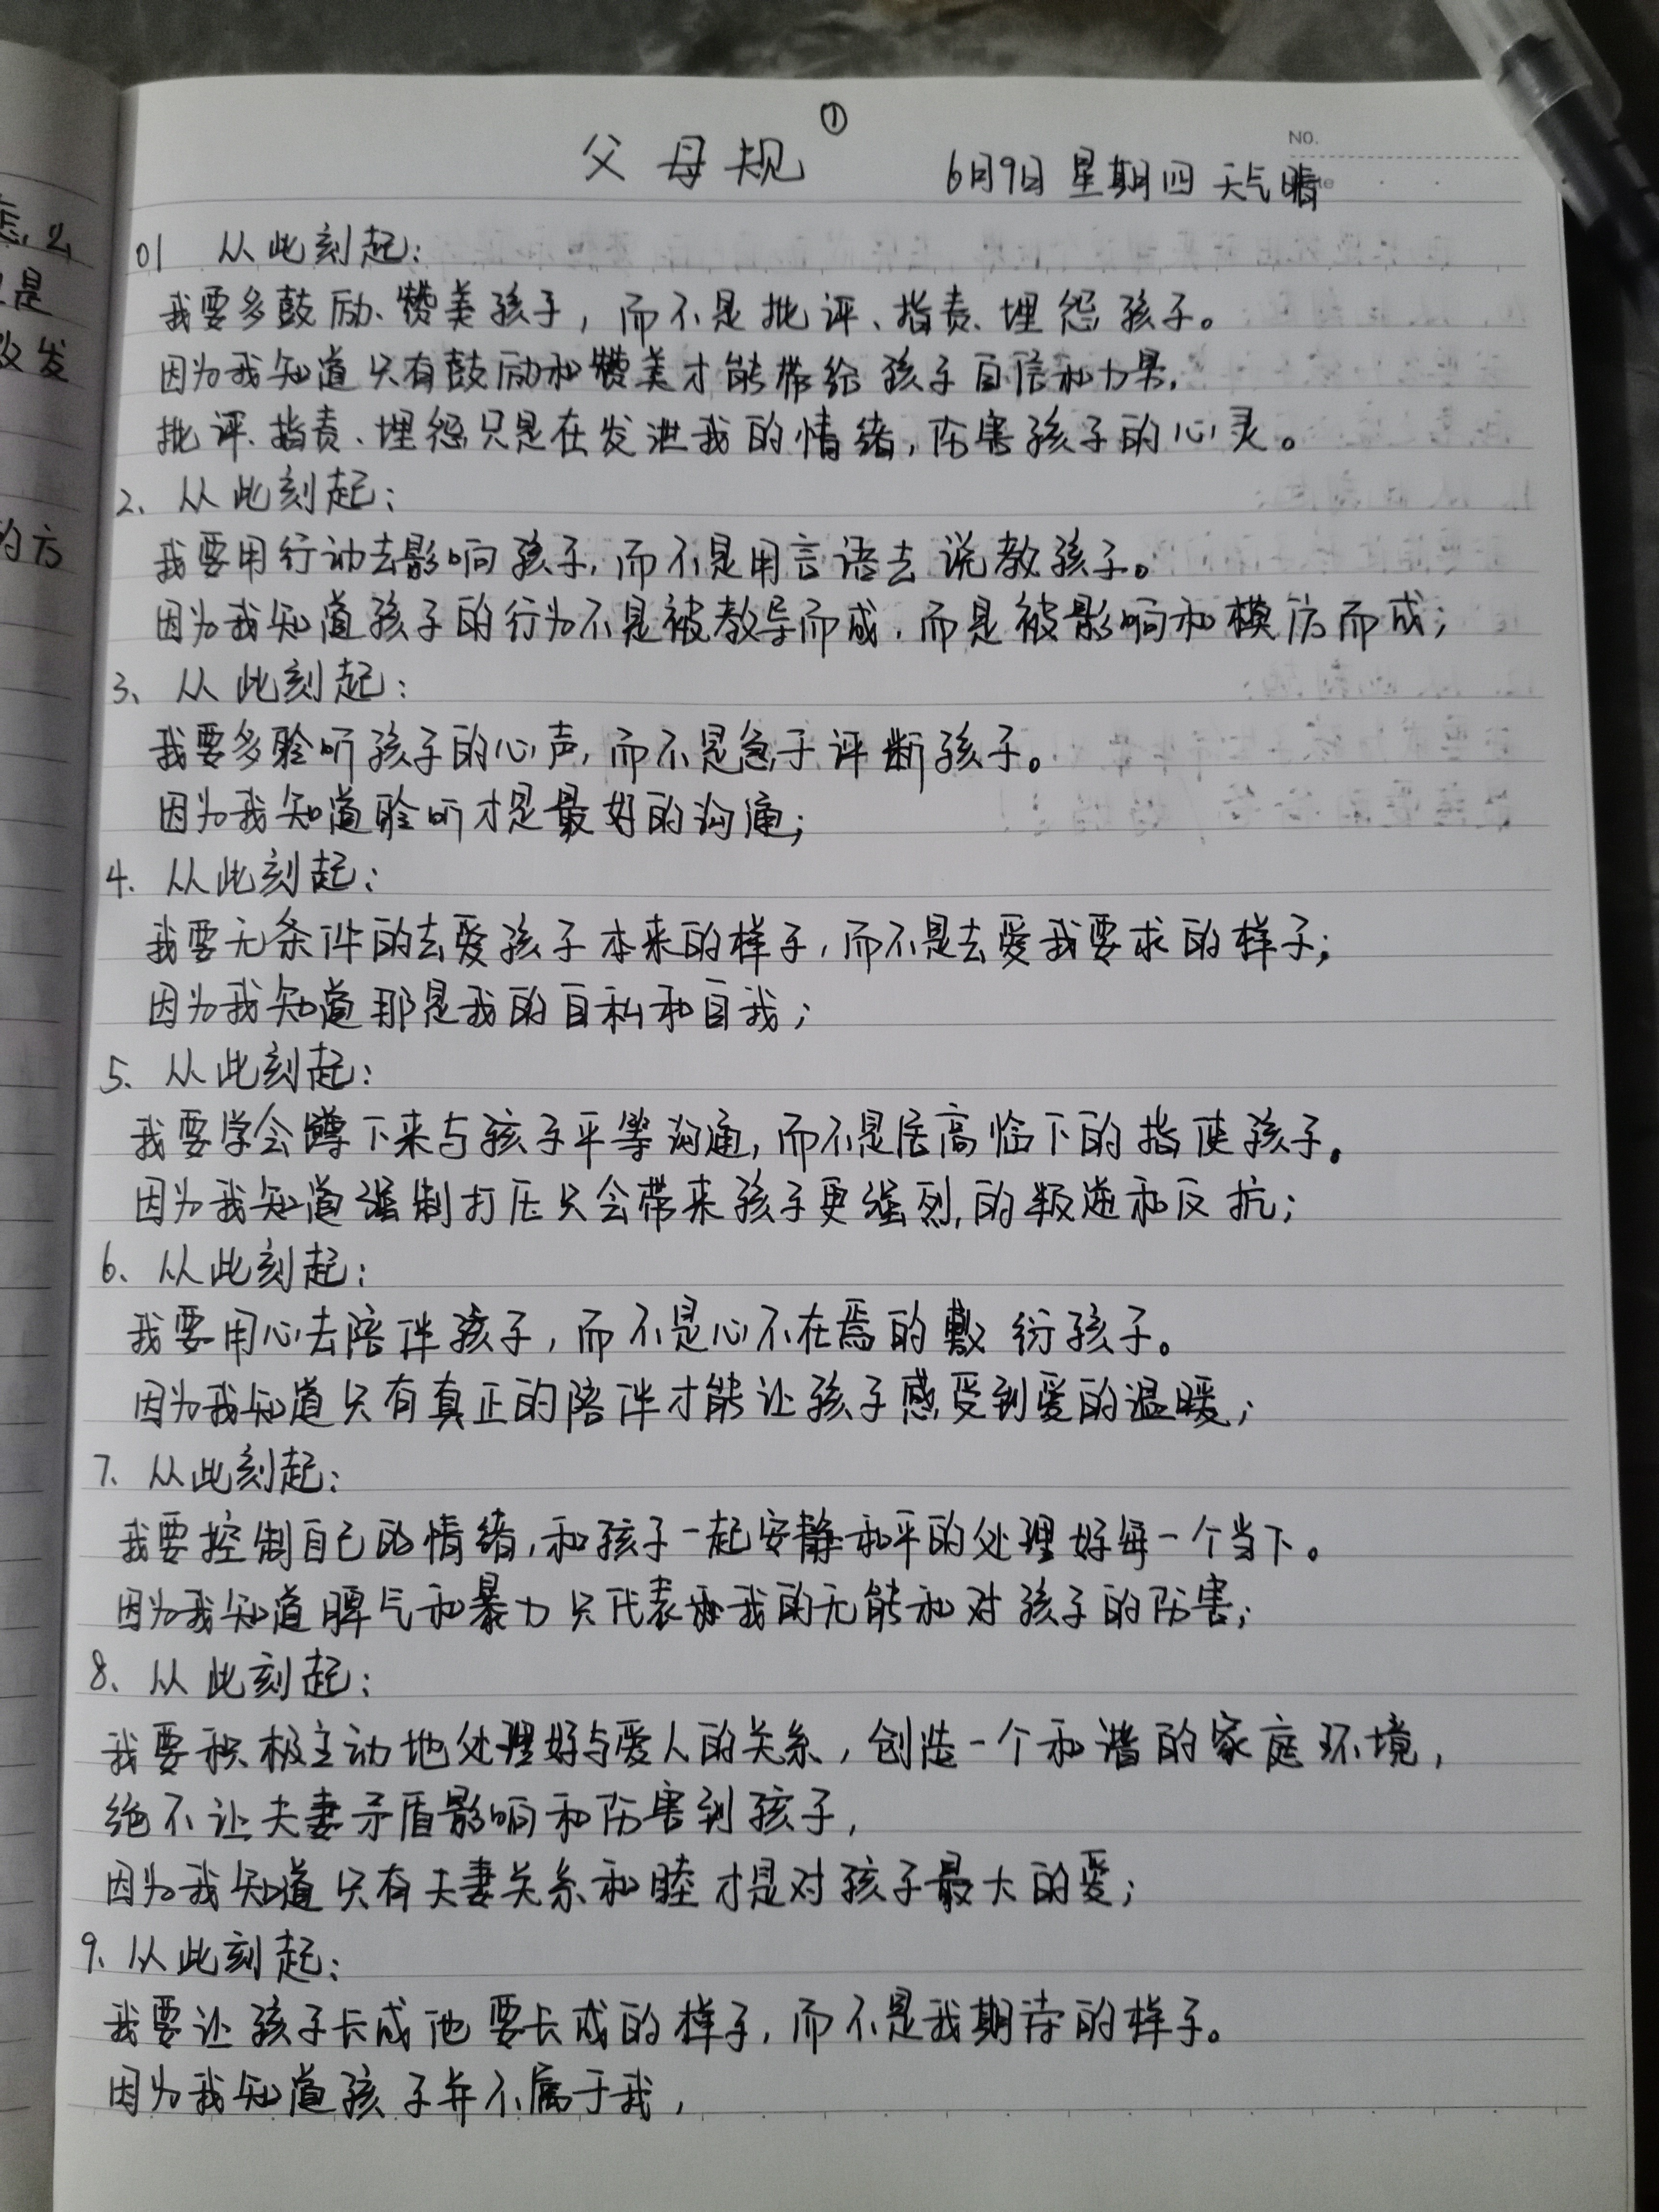 怎么
是
改发
的方
①
父母规
NO.
6月9日 星期四 天气晴
01 从此刻起:
我要多鼓励、赞美孩子,而不是批评、指责、埋怨孩子。
因为我知道只有鼓励和赞美才能带给孩子自信和力量,
批评、指责、埋怨只是在发泄我的情绪,伤害孩子的心灵。
2、从此刻起:
我要用行动去影响孩子,而不是用言语去说教孩子。
因为我知道孩子的行为不是被教导而成,而是被影响和模仿而成;
3、从此刻起:
我要多聆听孩子的心声,而不是急于评断孩子。
因为我知道聆听才是最好的沟通;
4、从此刻起:
我要无条件的去爱孩子本来的样子,而不是去爱我要求的样子;
因为我知道那是我的自私和自我;
5、从此刻起:
我要学会蹲下来与孩子平等沟通,而不是居高临下的指使孩子。
因为我知道强制打压只会带来孩子更强烈的叛逆和反抗;
6、从此刻起:
我要用心去陪伴孩子,而不是心不在焉的敷衍孩子。
因为我知道只有真正的陪伴才能让孩子感受到爱的温暖;
7、从此刻起:
我要控制自己的情绪,和孩子一起安静和平的处理好每一个当下。
因为我知道脾气和暴力只代表我的无能和对孩子的伤害;
8、从此刻起:
我要积极主动地处理好与爱人的关系,创造一个和谐的家庭环境,
绝不让夫妻矛盾影响和伤害到孩子,
因为我知道只有夫妻关系和睦才是对孩子最大的爱;
9、从此刻起:
我要让孩子长成他要长成的样子,而不是我期待的样子。
因为我知道孩子并不属于我,